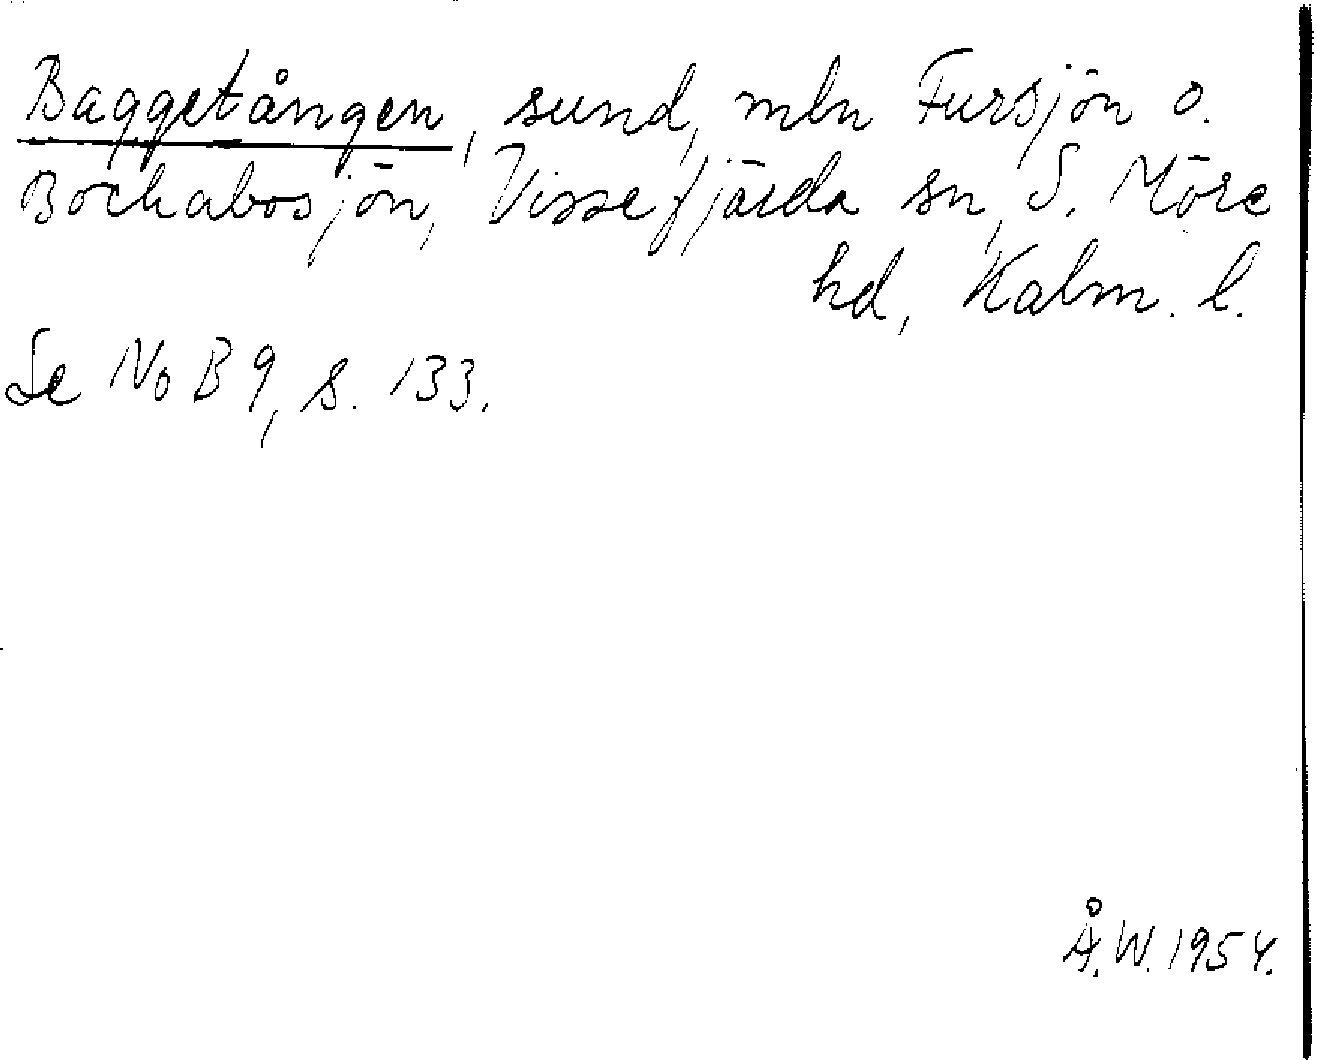 Baggetången, sund, mln Fursjön o.
Bockabosjön, Vissefjärda sn, S. Möre
hd, Kalm. l.
Se NoB 9, s. 133.
Å.W. 1954.